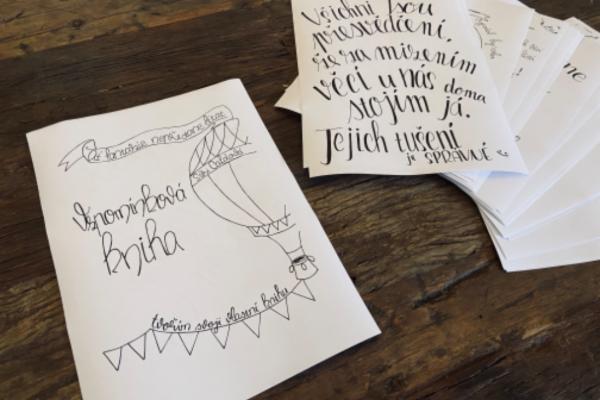 Vzpomínková
kniha
tvořím svoji vlastní knihu
Všichni jsou
přesvědčeni,
že za mizením
věcí u nás doma
stojím já.
Jejich tušení
je SPRÁVNÉ